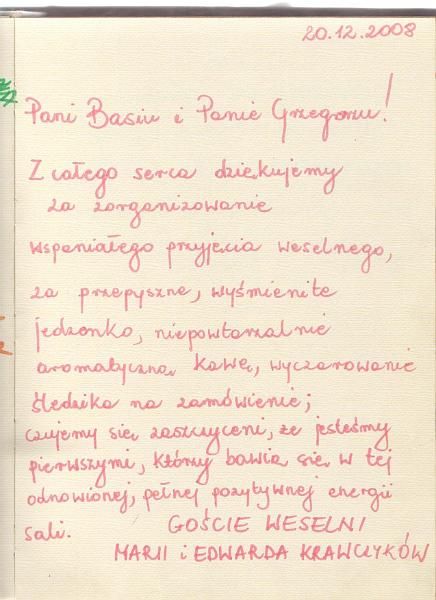 20.12.2008
Pani Basiu i Panie Grzegorzu!
Z całego serca dziękujemy
za zorganizowanie
wspaniałego przyjęcia weselnego,
za przepyszne, wyśmienite
jedzonko, niepowtarzalnie
aromatyczną kawę, wyczarowanie
śledzika na zamówienie;
czujemy się zaszczyceni, że jesteśmy
pierwszymi, którzy bawią się w tej
odnowionej, pełnej pozytywnej energii
sali. GOŚCIE WESELNI
MARII i EDWARDA KRAWCZYKÓW